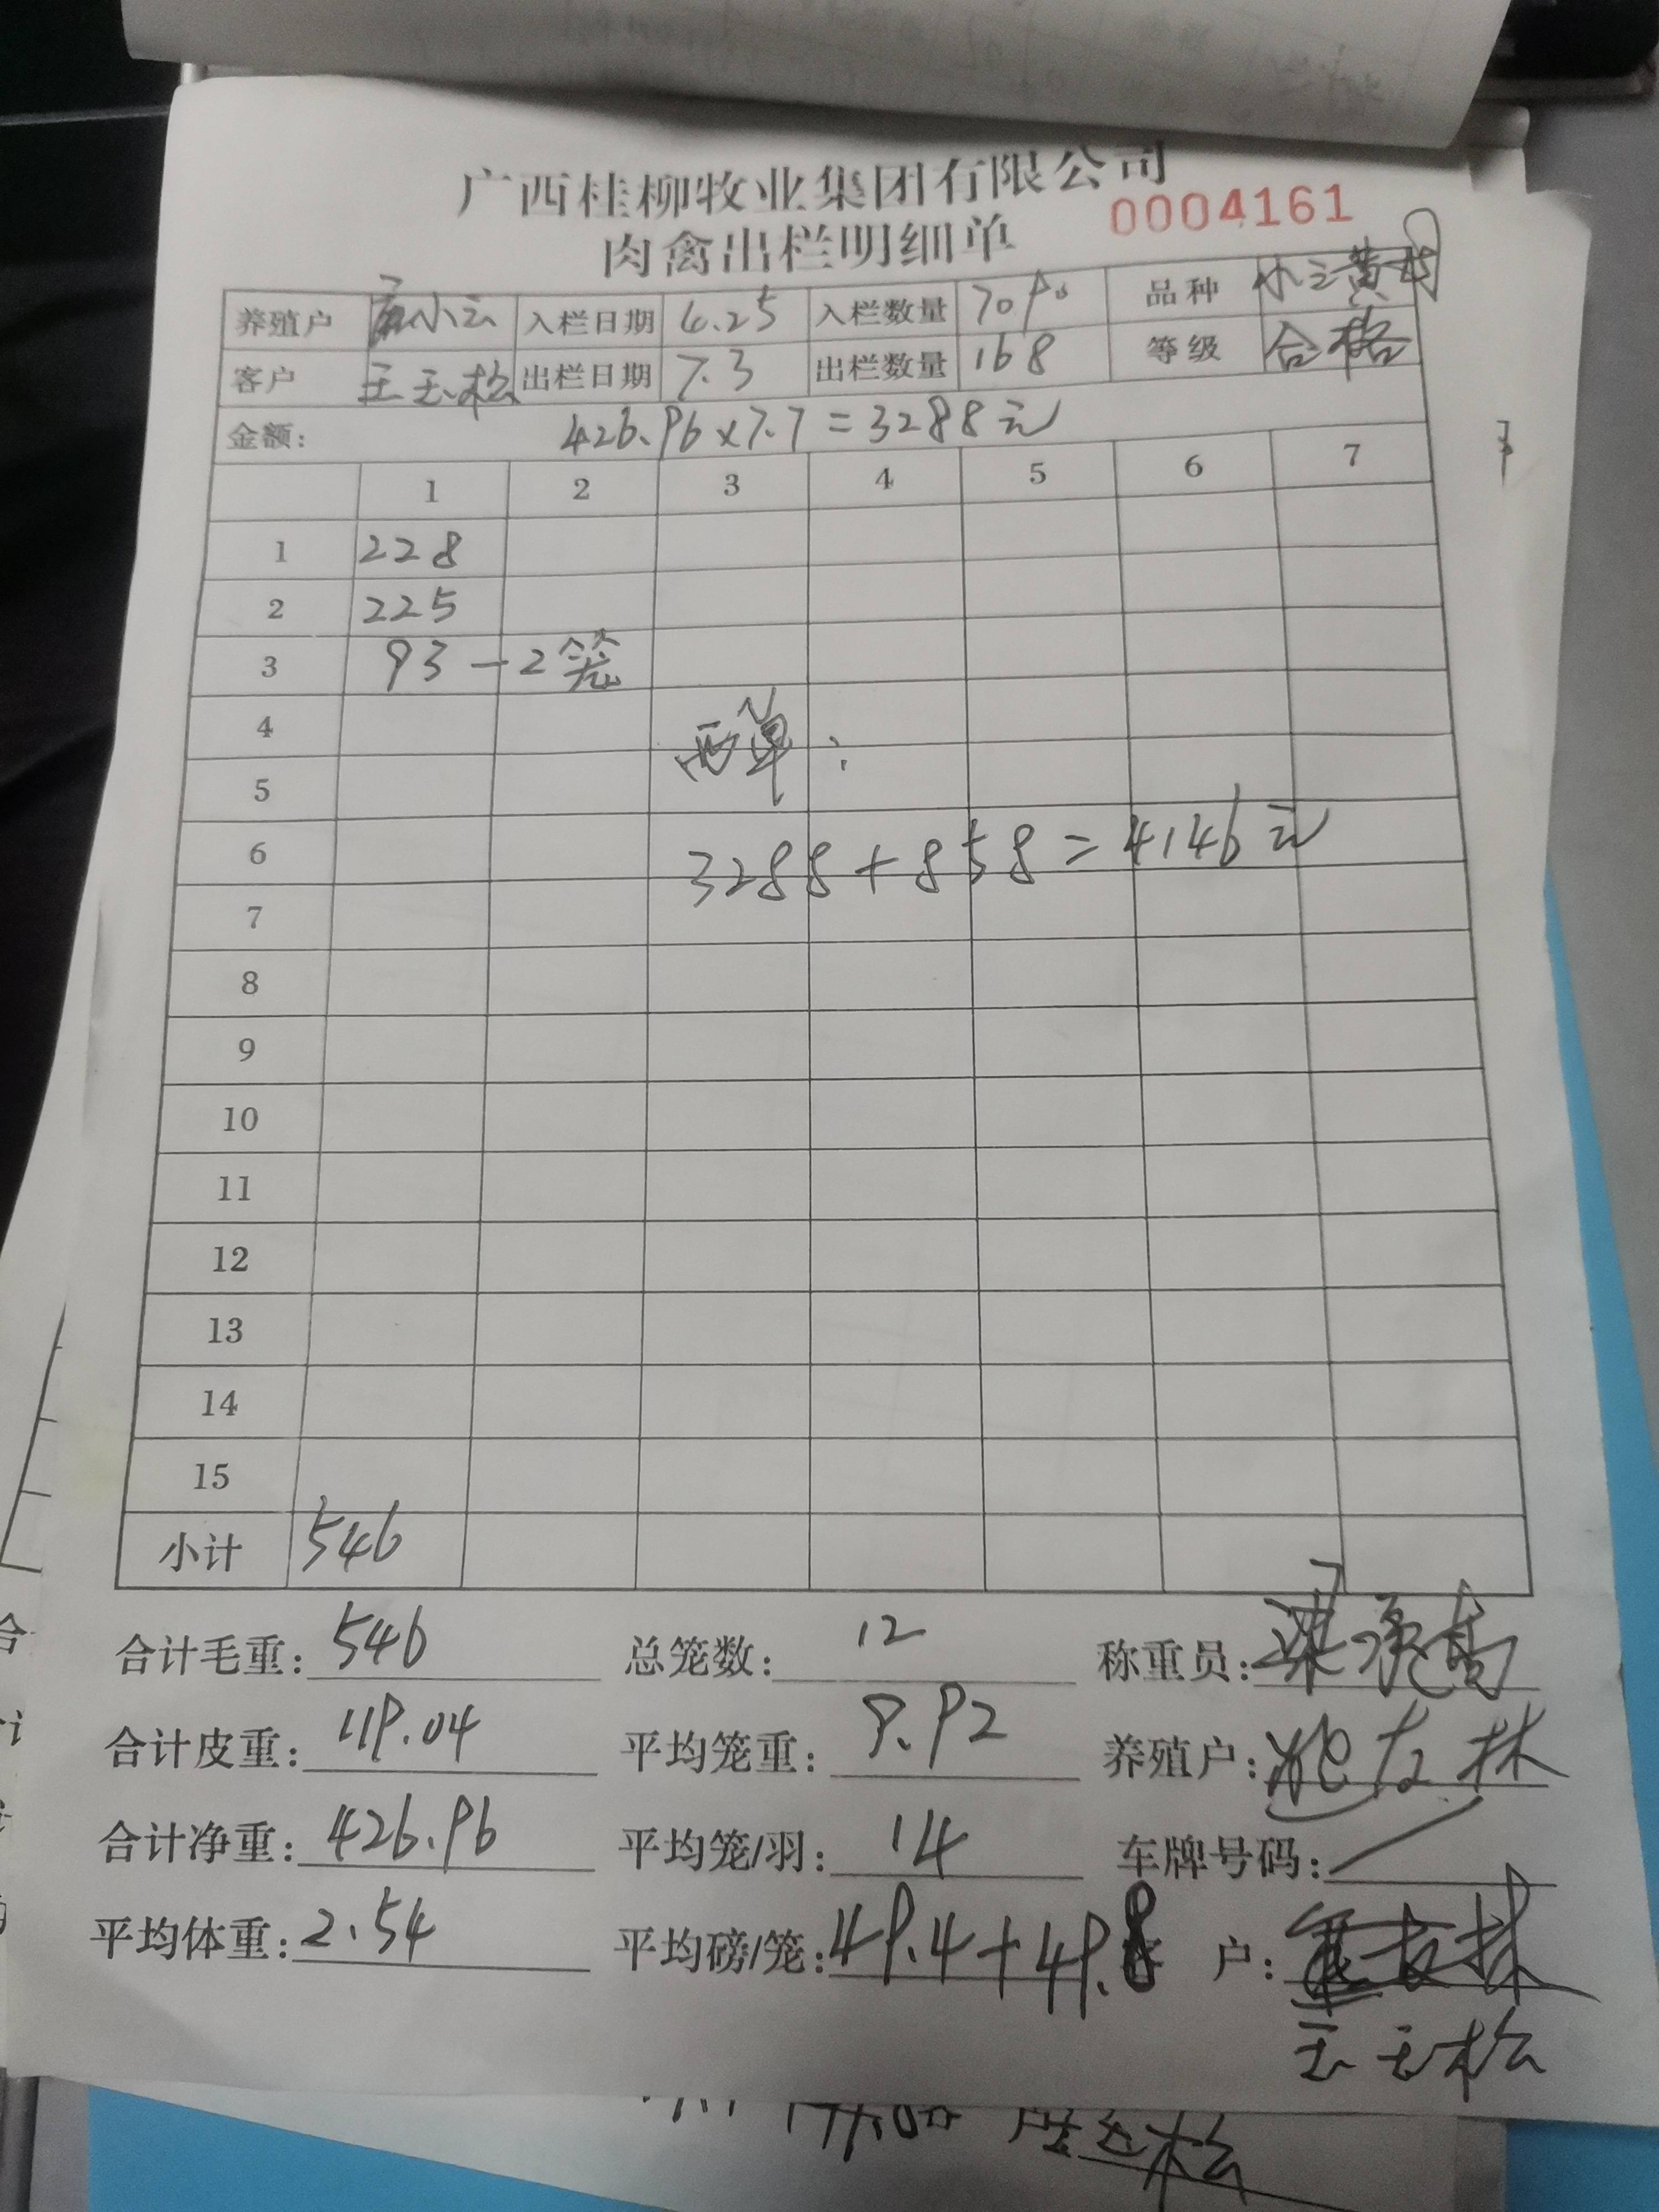 广西桂柳牧业集团有限公司
肉禽出栏明细单 0004161
养殖户 小云 入栏日期 6.25 入栏数量 7090 品种 小三黄
客户 王玉松 出栏日期 7.3 出栏数量 168 等级 合格
金额: 426.96×7.7=3288元
1 2 3 4 5 6 7
1 228
2 225
3 93-2笼
4
两单:
5
6
3288+858=4146元
7
8
9
10
11
12
13
14
15
小计 546
合计毛重: 546 总笼数: 12 称重员: 梁承高
合计皮重: 119.04 平均笼重: 9.92 养殖户: 友林
合计净重: 426.96 平均笼/羽: 14 车牌号码: /
平均体重: 2.54 平均磅/笼: 49.4+49.8 户:
王玉松